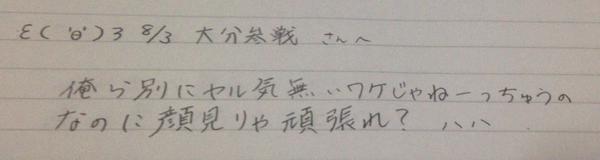 ε( 'θ' )3 8/3 大分参戦 さんへ
俺ら別にヤル気無いワケじゃねーっちゅうの
なのに顔見りゃ頑張れ? ハハ